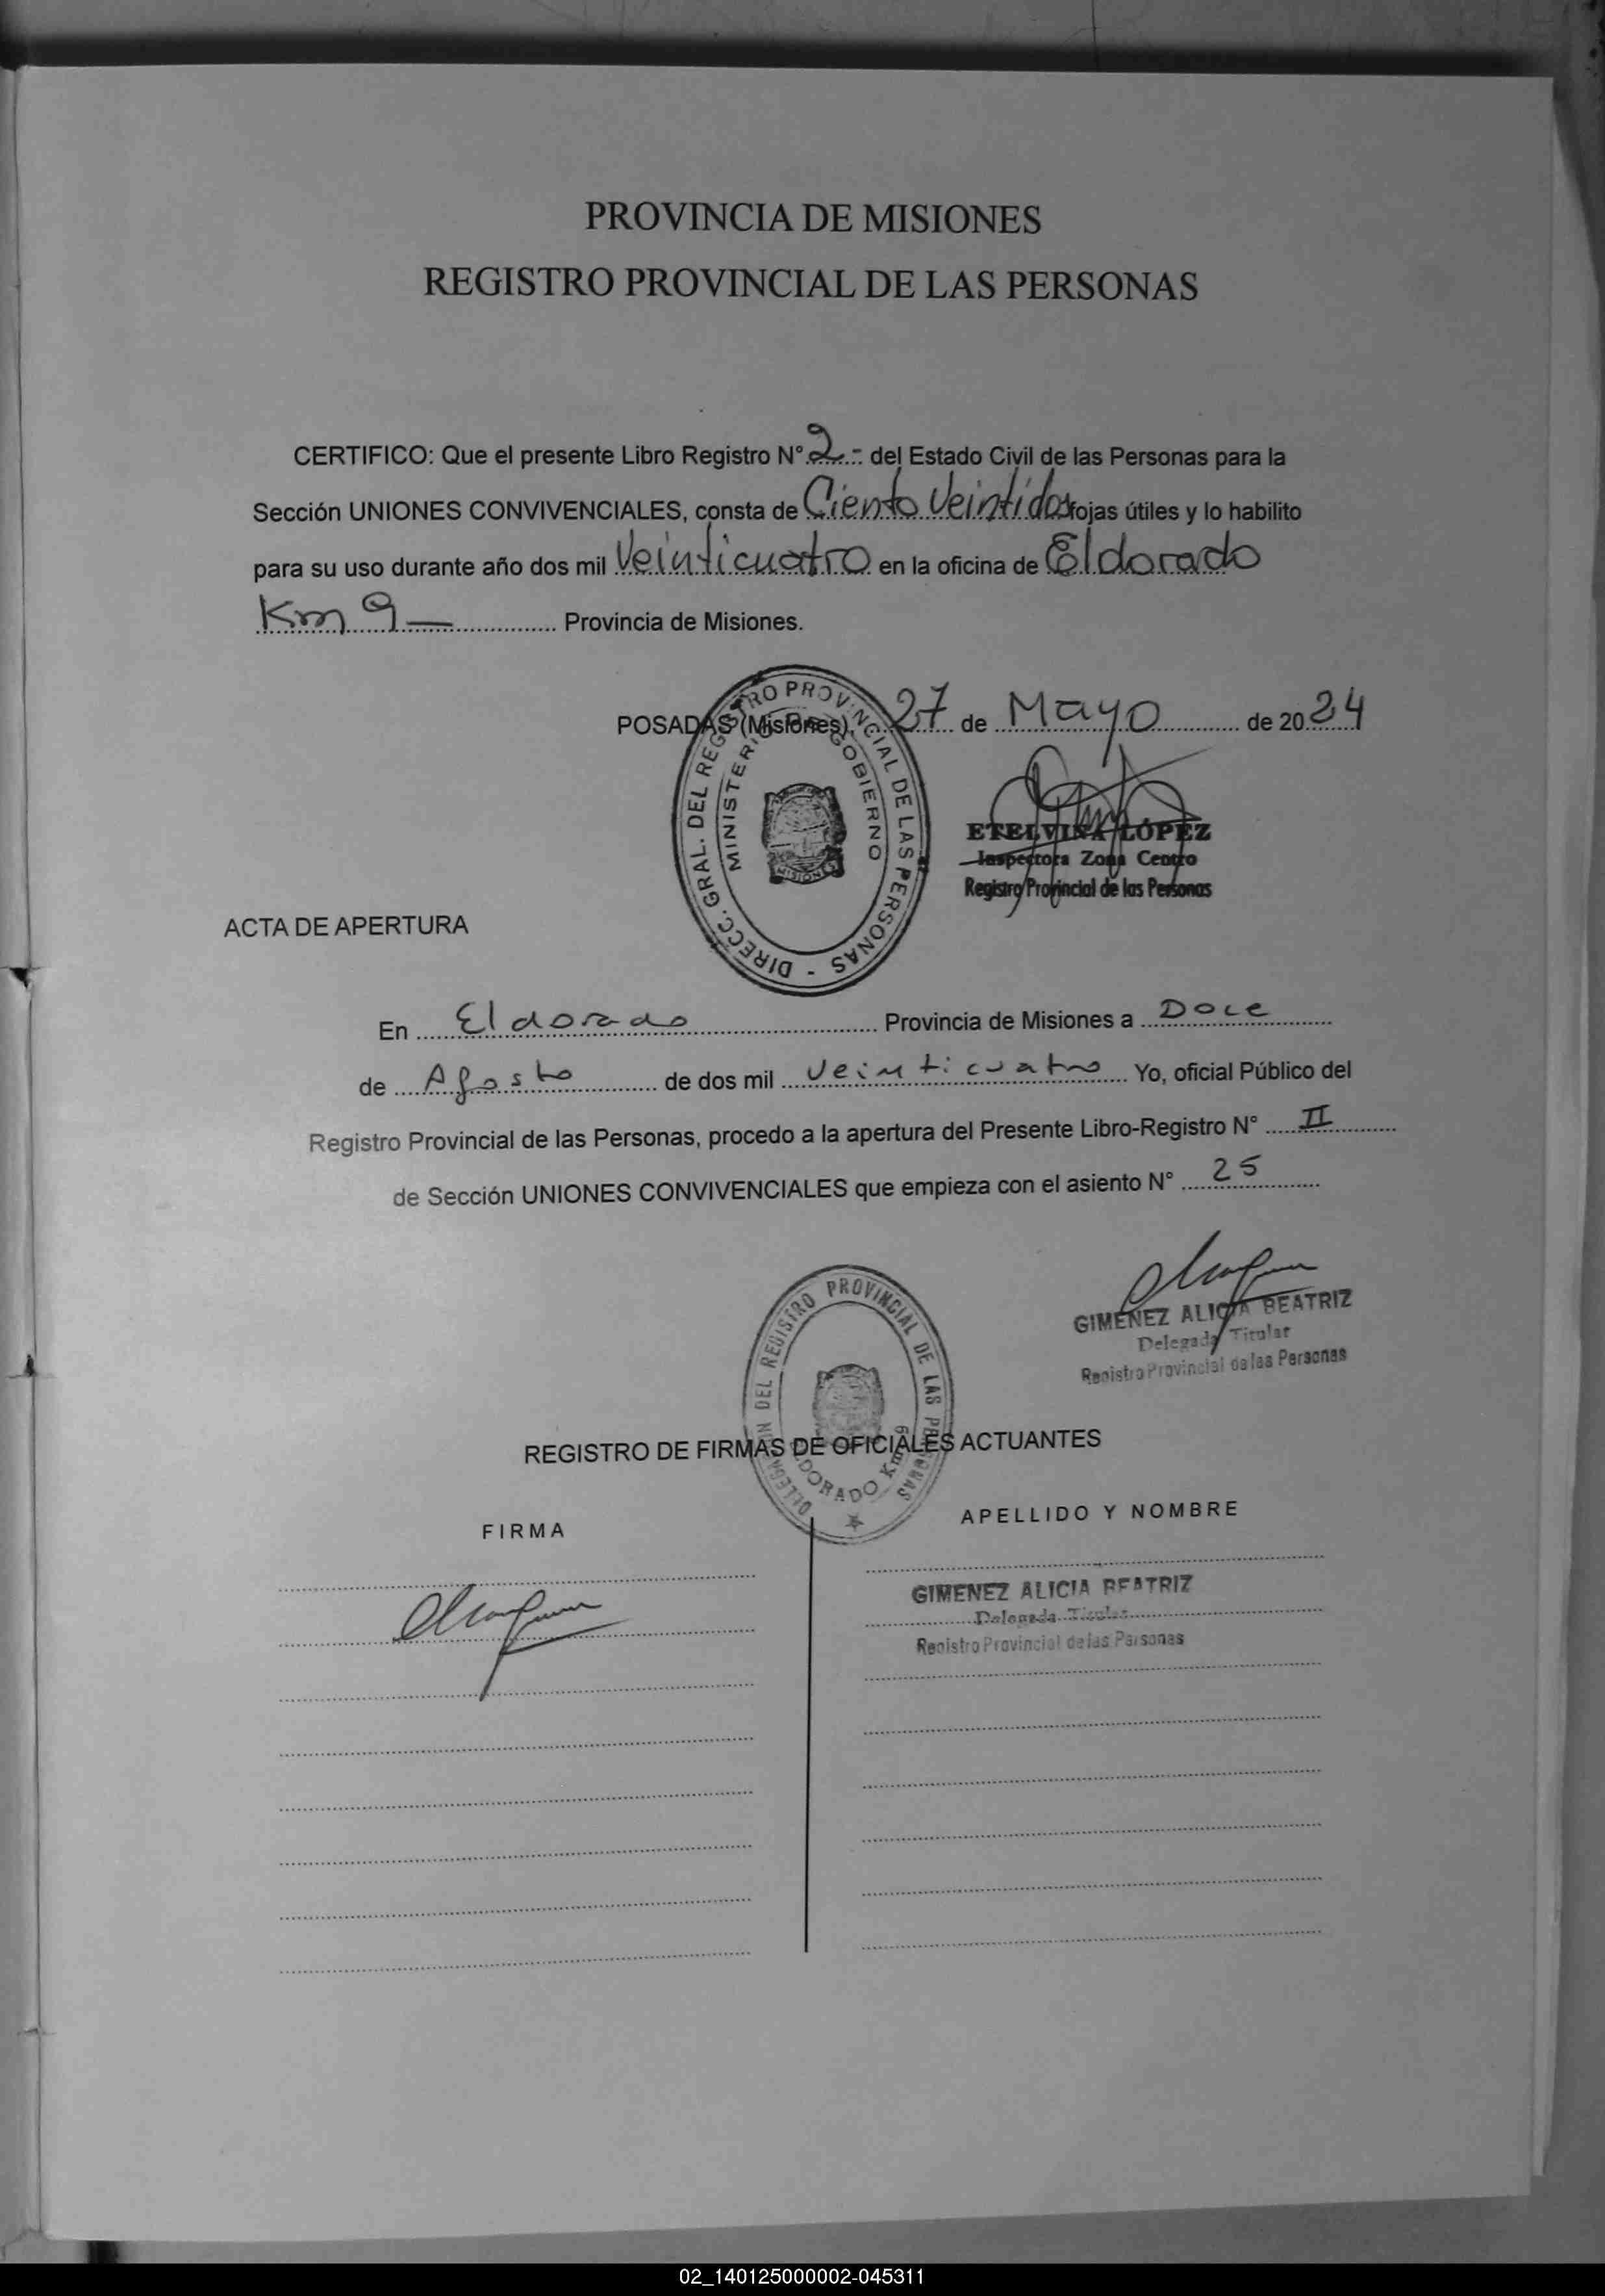 PROVINCIA DE MISIONES
REGISTRO PROVINCIAL DE LAS PERSONAS
CERTIFICO: Que el presente Libro Registro N° 2.- del Estado Civil de las Personas para la
Sección UNIONES CONVIVENCIALES, consta de Ciento Veintidos fojas útiles y lo habilito
para su uso durante año dos mil Veinticuatro en la oficina de Eldorado
Km 9 — Provincia de Misiones.
POSADAS (Misiones), 27 de Mayo de 2024
DIRECC. GRAL. DEL REGISTRO PROVINCIAL DE LAS PERSONAS -
MINISTERIO DE GOBIERNO
MISIONES
ETELVINA LÓPEZ
Inspectora Zona Centro
Registro Provincial de las Personas
ACTA DE APERTURA
En Eldorado Provincia de Misiones a Doce
de Agosto de dos mil Veinticuatro Yo, oficial Público del
Registro Provincial de las Personas, procedo a la apertura del Presente Libro-Registro N° II
de Sección UNIONES CONVIVENCIALES que empieza con el asiento N° 25
GIMENEZ ALICIA BEATRIZ
Delegada Titular
Registro Provincial de las Personas
DELEGACION DEL REGISTRO PROVINCIAL DE LAS PERSONAS
ELDORADO Km 9
REGISTRO DE FIRMAS DE OFICIALES ACTUANTES
FIRMA
APELLIDO Y NOMBRE
GIMENEZ ALICIA BEATRIZ
Delegada Titular
Registro Provincial de las Personas
02_140125000002-045311